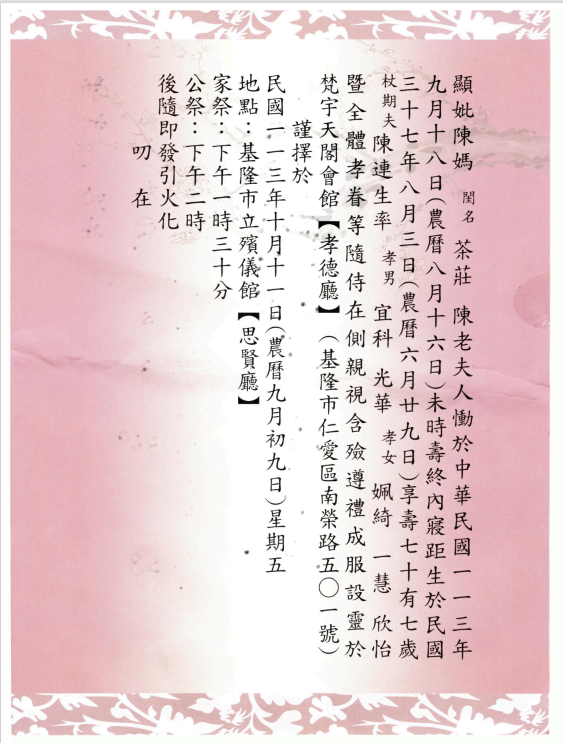 顯妣陳媽 閨名 茶莊 陳老夫人慟於中華民國一一三年
九月十八日(農曆八月十六日)未時壽終內寢距生於民國
三十七年八月三日(農曆六月廿九日)享壽七十有七歲
杖期夫 陳連生率 孝男 宜科 光華 孝女 姵綺 一慧 欣怡
暨全體孝眷等隨侍在側親視含殮遵禮成服設靈於
梵宇天閣會館【孝德廳】(基隆市仁愛區南榮路五〇一號)
謹擇於
民國一一三年十月十一日(農曆九月初九日)星期五
地點：基隆市立殯儀館【思賢廳】
家祭：下午一時三十分
公祭：下午二時
後隨即發引火化
叨 在